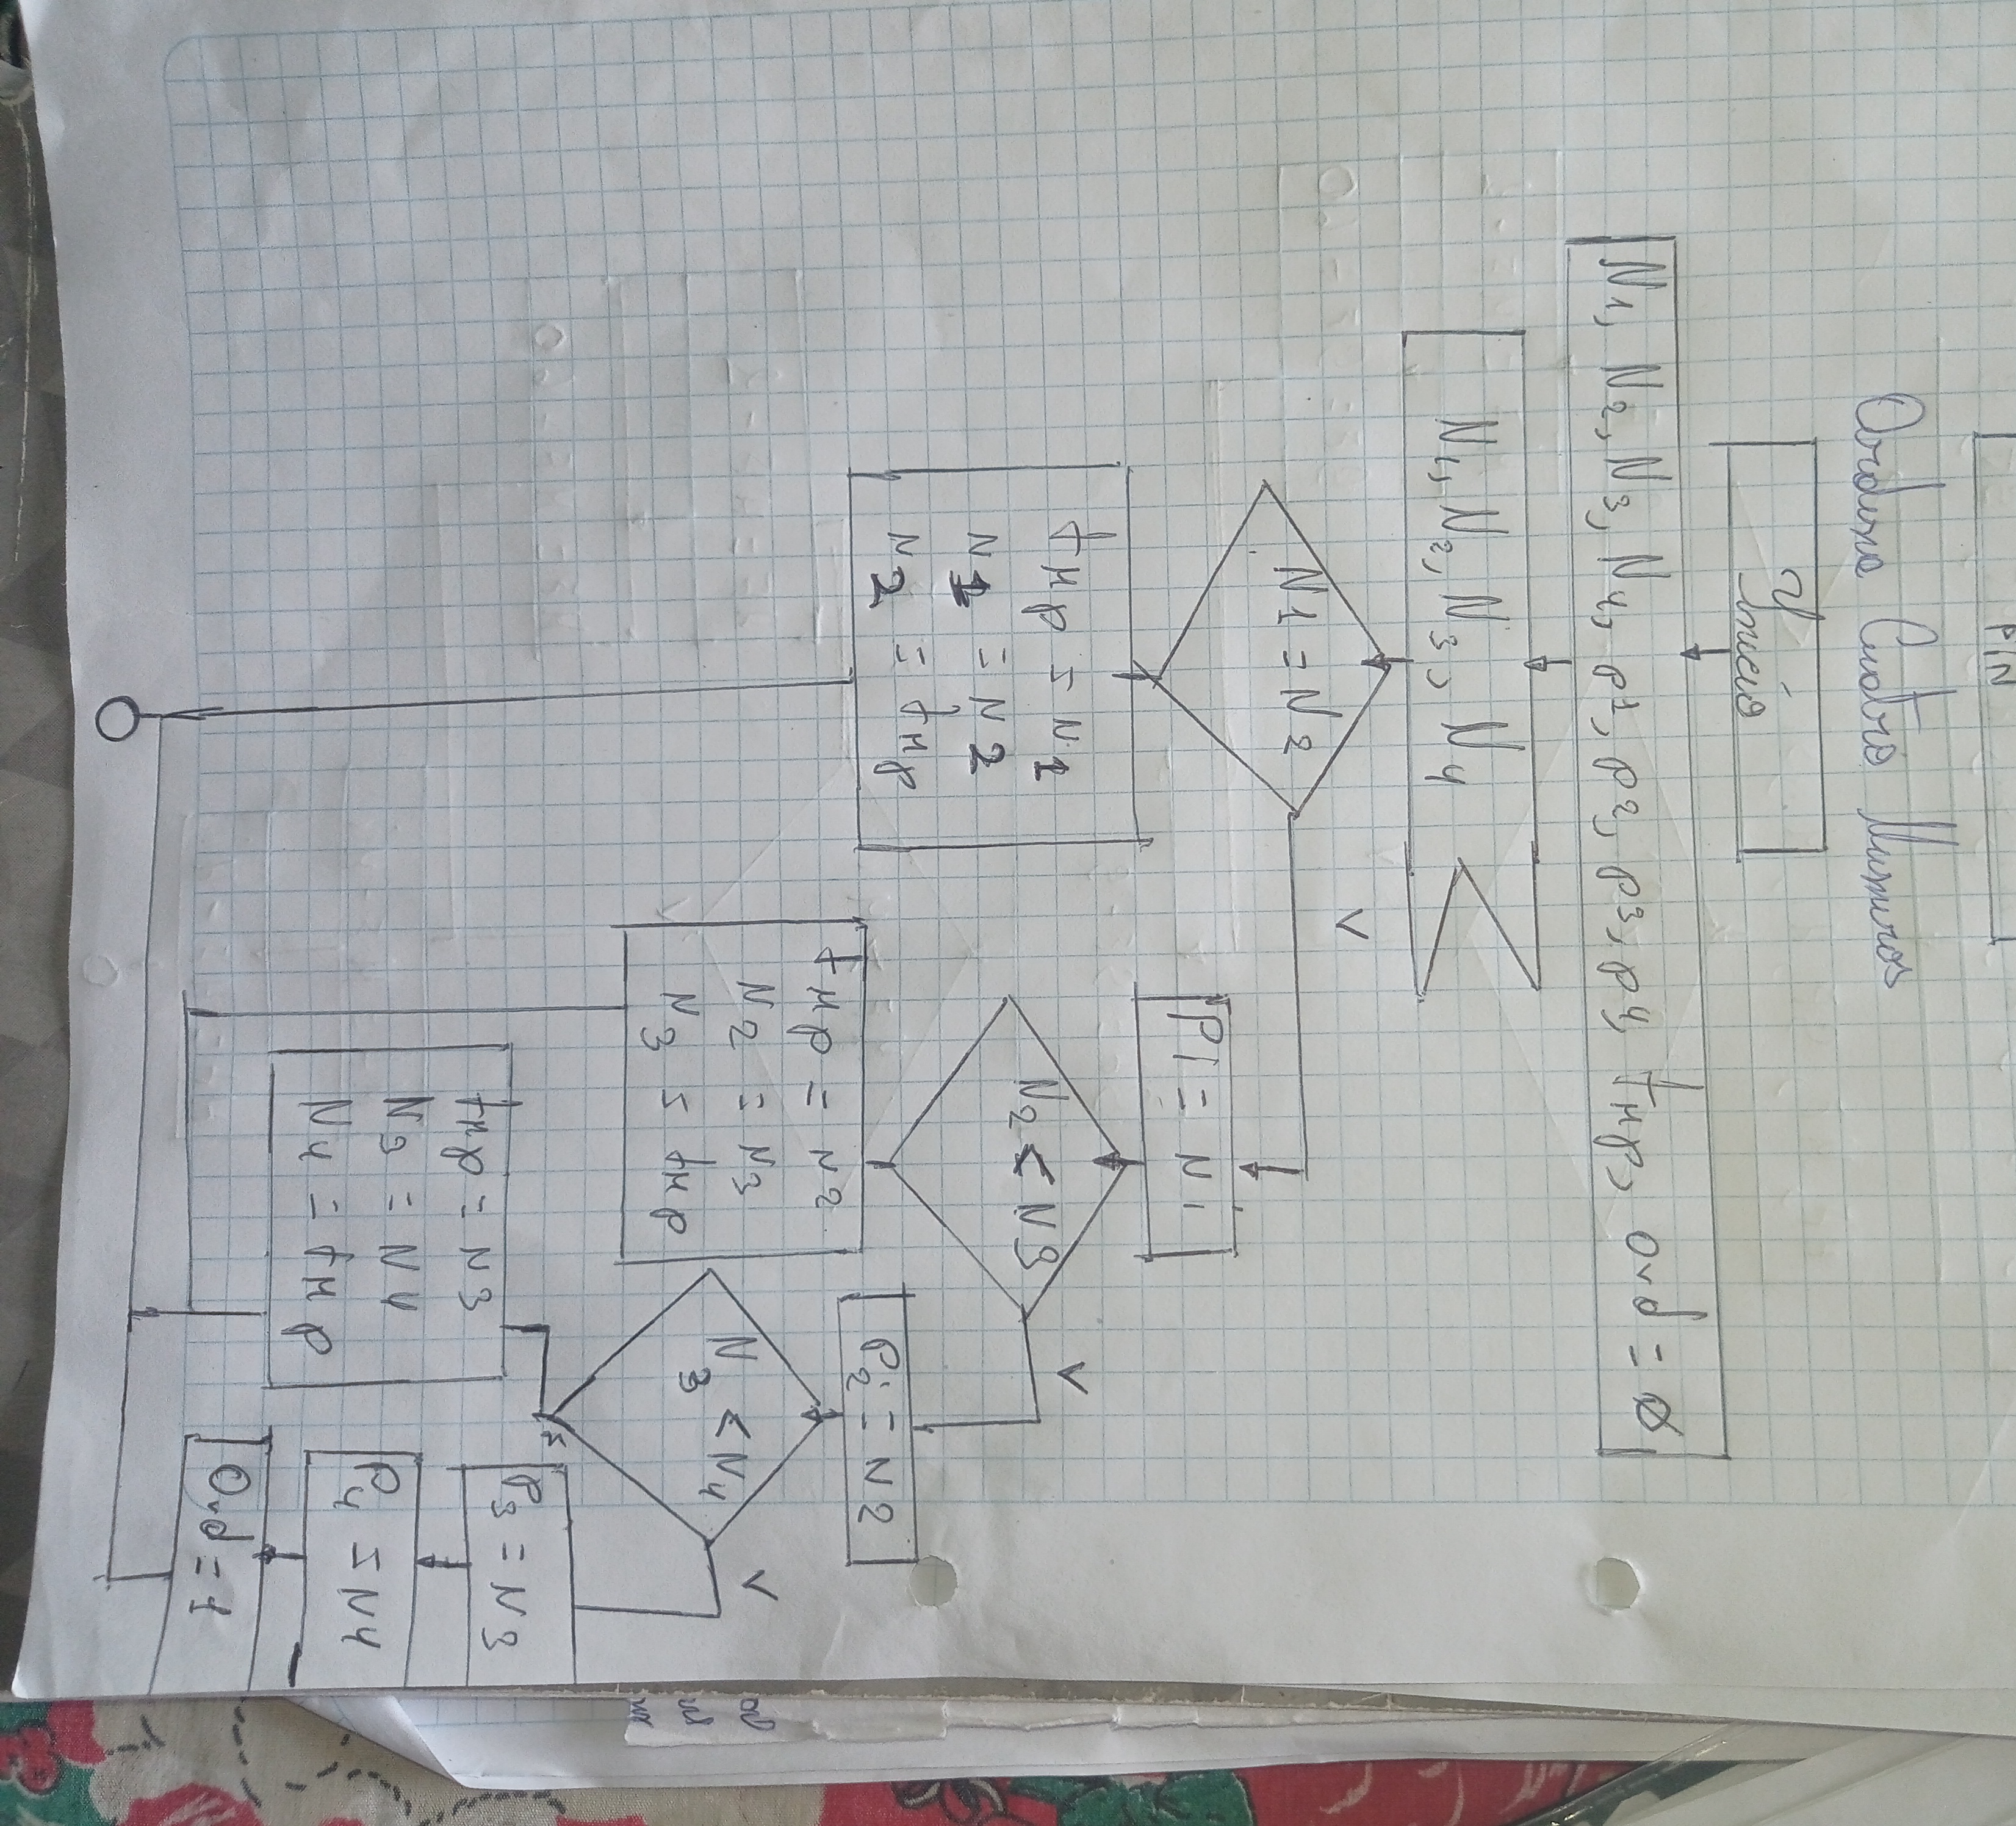 PIN
Ordena Cuatro Numeros
Inicio
N1, N2, N3, N4, P1, P2, P3, P4, tmp, Ord = Ø
N1, N2, N3, N4
N1 = N2
V
tmp = N1
N1 = N2
N2 = tmp
P1 = N1
N2 < N3
V
tmp = N2
N2 = N3
N3 = tmp
P2 = N2
N3 < N4
V
F
tmp = N3
N3 = N4
N4 = tmp
P3 = N3
P4 = N4
Ord = 1